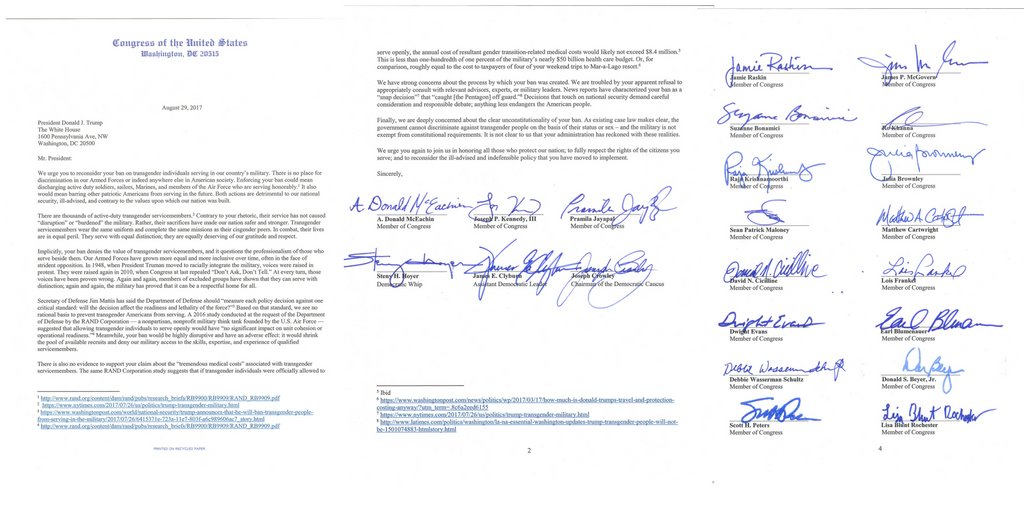 Congress of the United States
Washington, DC 20515
August 29, 2017
President Donald J. Trump
The White House
1600 Pennsylvania Ave, NW
Washington, DC 20500
Mr. President:
We urge you to reconsider your ban on transgender individuals serving in our country's military. There is no place for
discrimination in our Armed Forces or indeed anywhere else in American society. Enforcing your ban could mean
discharging active duty soldiers, sailors, Marines, and members of the Air Force who are serving honorably.1 It also
would mean barring other patriotic Americans from serving in the future. Both actions are detrimental to our national
security, ill-advised, and contrary to the values upon which our nation was built.
There are thousands of active-duty transgender servicemembers.2 Contrary to your rhetoric, their service has not caused
"disruption" or "burdened" the military. Rather, their sacrifices have made our nation safer and stronger. Transgender
servicemembers wear the same uniform and complete the same missions as their cisgender peers. In combat, their lives
are in equal peril. They serve with equal distinction; they are equally deserving of our gratitude and respect.
Implicitly, your ban denies the value of transgender servicemembers, and it questions the professionalism of those who
serve beside them. Our Armed Forces have grown more equal and more inclusive over time, often in the face of
strident opposition. In 1948, when President Truman moved to racially integrate the military, voices were raised in
protest. They were raised again in 2010, when Congress at last repealed "Don't Ask, Don't Tell." At every turn, those
voices have been proven wrong. Again and again, members of excluded groups have shown that they can serve with
distinction; again and again, the military has proven that it can be a respectful home for all.
Secretary of Defense Jim Mattis has said the Department of Defense should "measure each policy decision against one
critical standard: will the decision affect the readiness and lethality of the force?"3 Based on that standard, we see no
rational basis to prevent transgender Americans from serving. A 2016 study conducted at the request of the Department
of Defense by the RAND Corporation — a nonpartisan, nonprofit military think tank founded by the U.S. Air Force —
suggested that allowing transgender individuals to serve openly would have "no significant impact on unit cohesion or
operational readiness."4 Meanwhile, your ban would be highly disruptive and have an adverse effect: it would shrink
the pool of available recruits and deny our military access to the skills, expertise, and experience of qualified
servicemembers.
There is also no evidence to support your claim about the "tremendous medical costs" associated with transgender
servicemembers. The same RAND Corporation study suggests that if transgender individuals were officially allowed to
1 http://www.rand.org/content/dam/rand/pubs/research_briefs/RB9900/RB9909/RAND_RB9909.pdf
2 https://www.nytimes.com/2017/07/26/us/politics/trump-transgender-military.html
3 https://www.washingtonpost.com/world/national-security/trump-announces-that-he-will-ban-transgender-people-
4 http://www.rand.org/content/dam/rand/pubs/research_briefs/RB9900/RB9909/RAND_RB9909.pdf
PRINTED ON RECYCLED PAPER
serve openly, the annual cost of resultant gender transition-related medical costs would likely not exceed $8.4 million.5
This is less than one-hundredth of one percent of the military's nearly $50 billion health care budget. Or, for
comparison, roughly equal to the cost to taxpayers of four of your weekend trips to Mar-a-Lago resort.6
We have strong concerns about the process by which your ban was created. We are troubled by your apparent refusal to
appropriately consult with relevant advisors, experts, or military leaders. News reports have characterized your ban as a
"snap decision"7 that "caught [the Pentagon] off guard."8 Decisions that touch on national security demand careful
consideration and responsible debate; anything less endangers the American people.
Finally, we are deeply concerned about the clear unconstitutionality of your ban. As existing case law makes clear, the
government cannot discriminate against transgender people on the basis of their status or sex – and the military is not
exempt from constitutional requirements. It is not clear to us that your administration has reckoned with these realities.
We urge you again to join us in honoring all those who protect our nation; to fully respect the rights of the citizens you
serve; and to reconsider the ill-advised and indefensible policy that you have moved to implement.
Sincerely,
A. Donald McEachin
A. Donald McEachin
Member of Congress
Joseph P. Kennedy, III
Member of Congress
Pramila Jayapal
Pramila Jayapal
Member of Congress
Steny H. Hoyer
Democratic Whip
James E. Clyburn
Assistant Democratic Leader
Joseph Crowley
Chairman of the Democratic Caucus
5 Ibid
6 https://www.washingtonpost.com/news/politics/wp/2017/03/17/how-much-is-donald-trumps-travel-and-protection-
costing-anyway/?utm_term=.8c6a2eed6155
7 https://www.nytimes.com/2017/07/26/us/politics/trump-transgender-military.html
8 http://www.latimes.com/politics/washington/la-na-essential-washington-updates-trump-transgender-people-will-not-
be-1501074883-htmlstory.html
2
Jamie Raskin
Jamie Raskin
Member of Congress
James P. McGovern
Member of Congress
Suzanne Bonamici
Suzanne Bonamici
Member of Congress
Ro Khanna
Member of Congress
Raja Krishnamoorthi
Member of Congress
Julia Brownley
Julia Brownley
Member of Congress
Sean Patrick Maloney
Member of Congress
Matthew Cartwright
Member of Congress
David N. Cicilline
David N. Cicilline
Member of Congress
Lois Frankel
Lois Frankel
Member of Congress
Dwight Evans
Dwight Evans
Member of Congress
Earl Blumenauer
Member of Congress
Debbie Wasserman Schultz
Member of Congress
Don Beyer
Donald S. Beyer, Jr.
Member of Congress
Scott H. Peters
Member of Congress
Lisa Blunt Rochester
Lisa Blunt Rochester
Member of Congress
4